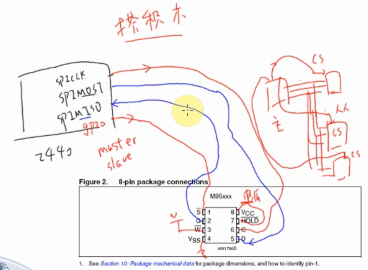 搭积木
SPICLK
SPIMOSI
SPIMISO
gpio
2440
master
slave
CS
主
CS
CS
Figure 2. 8-pin package connections
M95xxx
S 1 8 VCC
Q 2 7 HOLD
W 3 6 C
VSS 4 5 D
AI01790D
1. See Section 10: Package mechanical data for package dimensions, and how to identify pin-1.